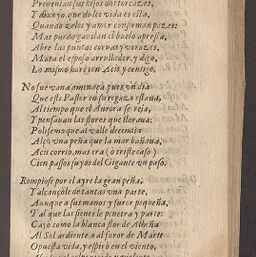 Preuenian sus hijos dos torcazes,
Y dixo yo, que dolce vida es esta,
Quando zelos y amor confirman pazes:
Mas pardo gauilan el buelo apresta,
Abre las puntas coruas y vorazes,
Mata el esposo arrollador, y digo,
Lo mismo harè con Acis, y contigo,
No fue vana amenaza, pues vn dia
Que este Pastor en su regazo estaua,
Al tiempo que el Aurora se reìa,
Y pensauan las flores que lloraua:
Polifemo que al valle decendia
Alçò vna peña que la mar bañaua,
Acis corriò, mas era (o triste caso)
Cien passos suyos del Gigante vn paso.
Rompiose por el ayre la gran peña,
Y alcançòle de tantas vna parte,
Aunque a sus manos y furor pequeña,
Y tal que las sienes le penetra y parte:
Cayò como la blanca flor de Albeña
Al Sol ardiente, o al furor de Marte
Opuesta vida, y espirò en el viento,